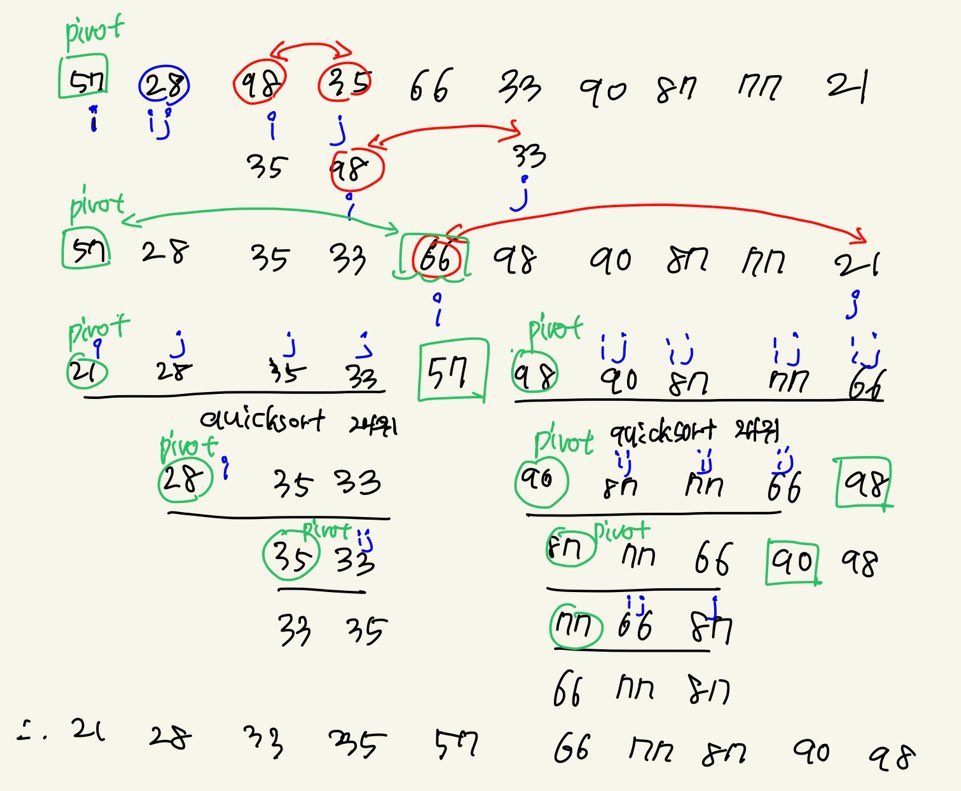 pivot
57 28 98 35 66 33 90 87 77 21
i ij i j
35 98 33
i j
pivot
57 28 35 33 66 98 90 87 77 21
i j
pivot pivot
i j j j ij ij ij ij
21 28 35 33 57 98 90 87 77 66
quicksort 재귀 quicksort 재귀
pivot i pivot ij ij ij
28 35 33 90 87 77 66 98
pivot ij pivot
35 33 87 77 66 90 98
ij j
33 35 77 66 87
66 77 87
∴ 21 28 33 35 57 66 77 87 90 98